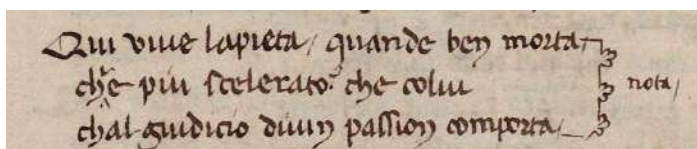 Qui viue lapieta/ quande ben morta/
che piu scelerato? che colui nota/
chal giudicio diuin passion comporta/